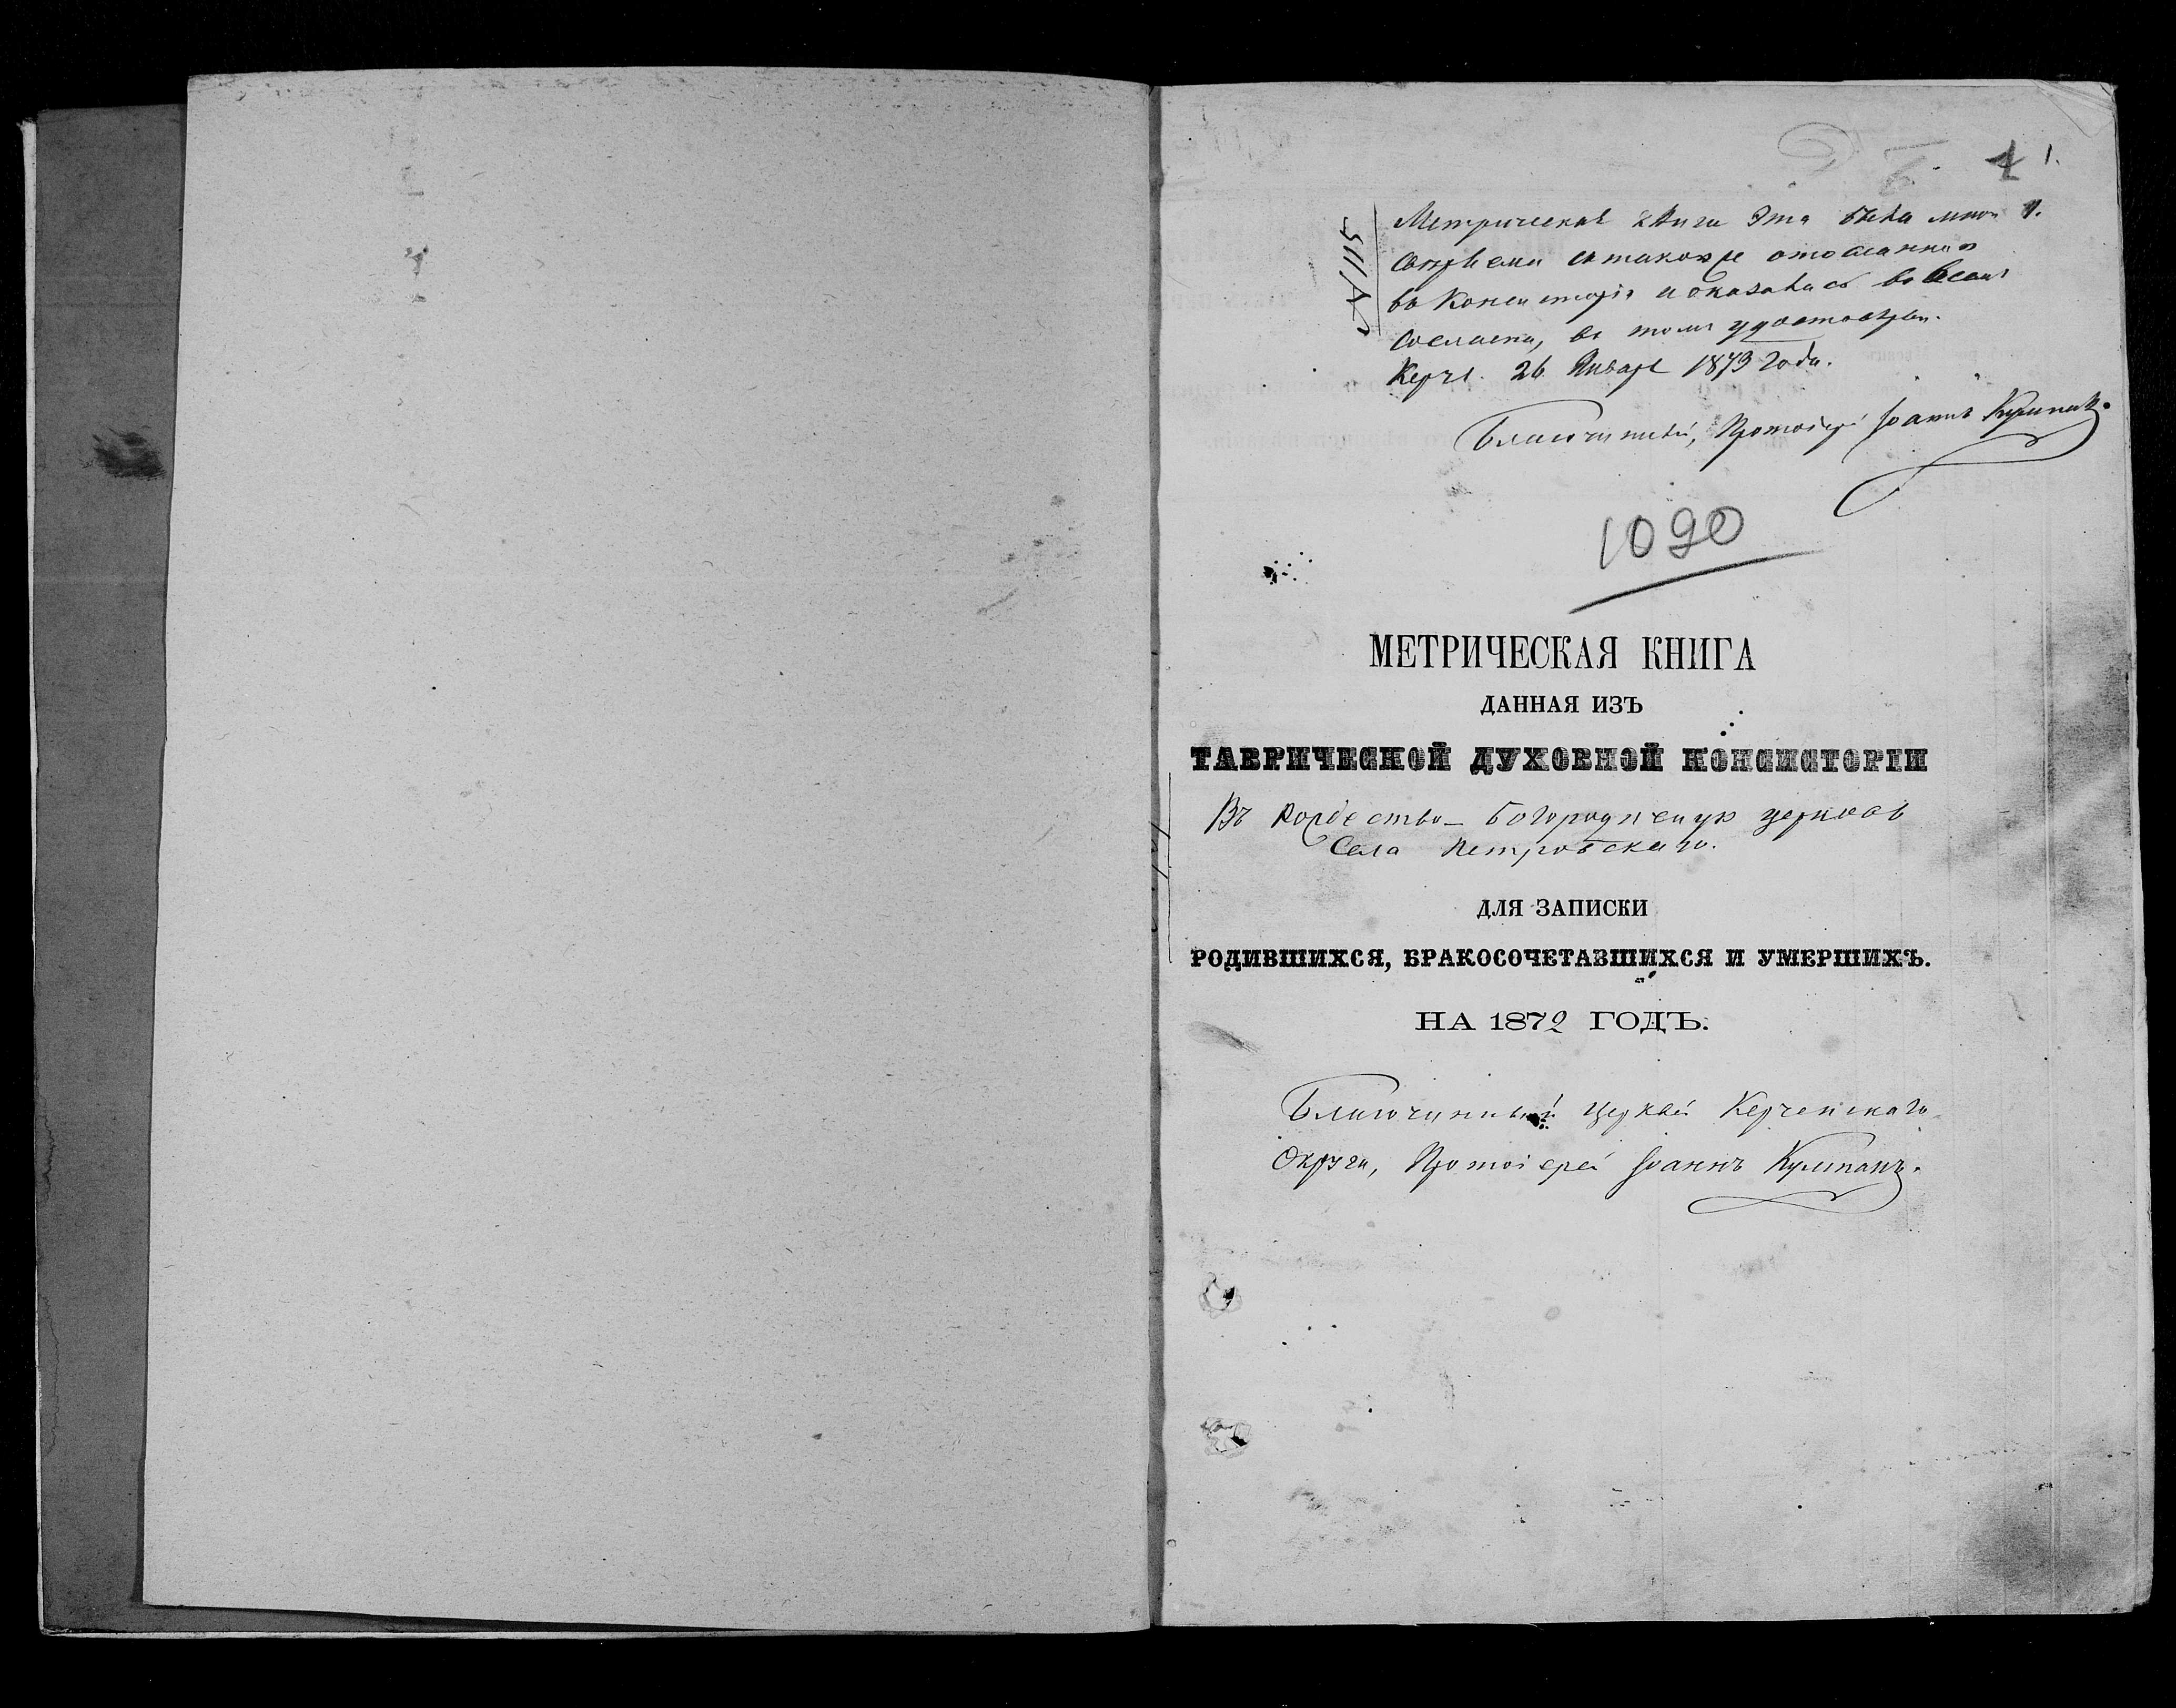 1 1.
Метрическая книга эта была мною
сверяема с таковою же отосланною
въ Консисторію и оказалась во всемъ
согласна, въ томъ удостовѣряю.
Керчь. 26 Января 1873 года.
Благочинный, Протоіерей Іоаннъ Кумпанъ.
1090
МЕТРИЧЕСКАЯ КНИГА
ДАННАЯ ИЗЪ
ТАВРИЧЕСКОЙ ДУХОВНОЙ КОНСИСТОРІИ
Въ Рождество-Богородичную церковь
Села Петровскаго.
ДЛЯ ЗАПИСКИ
РОДИВШИХСЯ, БРАКОСОЧЕТАВШИХСЯ И УМЕРШИХЪ.
НА 1872 ГОДЪ.
Благочинный церквей Керченскаго
Округа, Протоіерей Іоаннъ Кумпанъ.